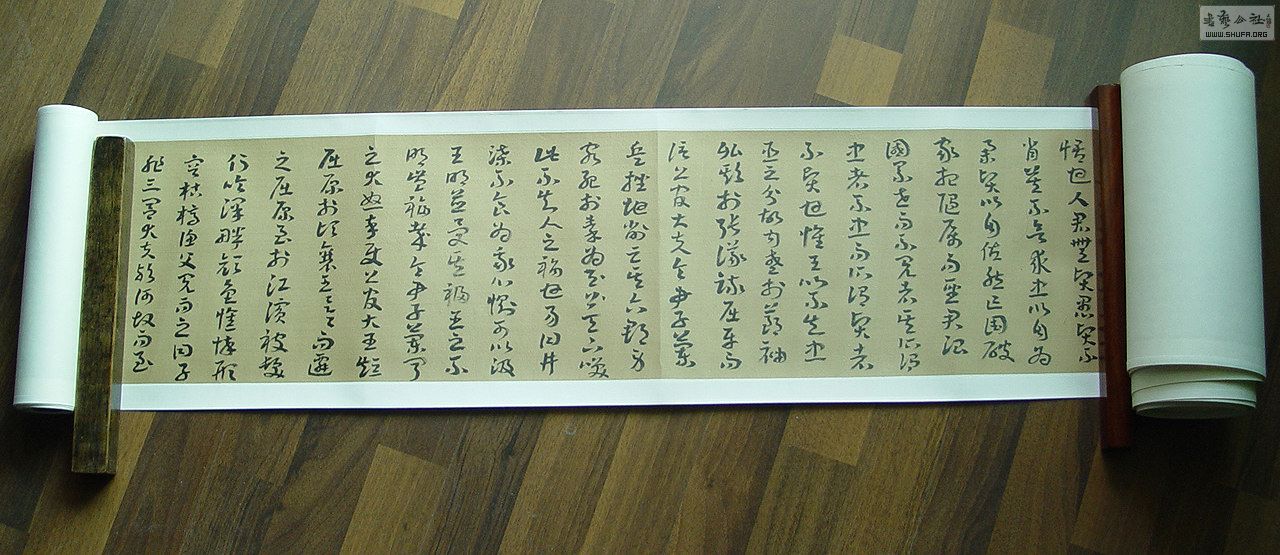 悟也人君無智愚賢不
肖莫不欲求忠以自為
舉賢以自佐然亡國破
家相隨屬而聖君治
國累世而不見者其所謂
忠者不忠而所謂賢者
不賢也懷王以不知忠
臣之分故內惑於鄭袖
外欺於張儀疏屈平而
信上官大夫令尹子蘭
兵挫地削亡其六郡身
客死於秦為天下笑
此不知人之禍也易曰井
渫不食為我心惻可以汲
王明並受其福王之不
明豈足福哉令尹子蘭聞
之大怒卒使上官大夫短
屈原於頃襄王王怒而遷
之屈原至於江濱被髮
行吟澤畔顏色憔悴形
容枯槁漁父見而問之曰子
非三閭大夫歟何故而至
書藝公社
WWW.SHUFA.ORG